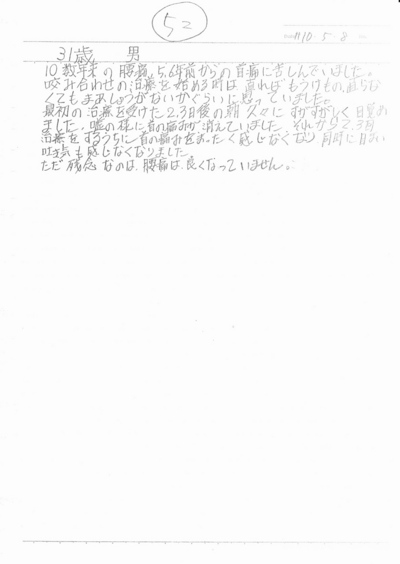 52
H10 5-8
31歳 男
10数年来の腰痛、5,6年前からの首痛に苦しんでいました。
咬み合わせの治療を始める時は直ればもうけもの、直らな
くてもまあしょうがないかぐらいに思っていました。
最初の治療を受けた2,3日後の朝久々にすがすがしく目覚め
ました。嘘の様に首の痛みが消えていました。それから2,3月
治療をするうちに首の痛みをまったく感じなくなり同時に目まい
吐き気も感じなくなりました。
ただ残念なのは、腰痛は良くなっていません。